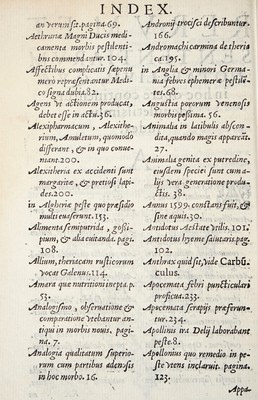 INDEX.
an verum sit. pagina. 69.
Aethraria Magni Ducis medi-
camenta morbis pestilenti-
bus commendantur. 104.
Affectibus complicatis sæpenu
mero repræsentantur Medi-
co signa dubia. 82.
Agens vt actionem producat,
debet esse in actu. 36.
Alexipharmacum, Alexithe-
rium, Amuletum, quomodo
differant, & in quo conue-
niant. 200.
Alexitheria ex accidenti sunt
margaritæ, & pretiosi lapi-
des. 200.
in Algheria peste quo præsidio
multi euaserunt. 153.
Alimenta semiputrida, gossi-
pium, & alia euitanda. pagi.
108.
Allium, theriacam rusticorum
vocat Galenus. 114.
Amara quæ nutritioni inepta. p.
53.
Analogismo, obseruatione &
comperatione vtebantur an-
tiqui in morbis nouis. pagi-
na. 7.
Analogia qualitatum superio-
rum cum partibus adensis
in hoc morbo. 16.
Andronij trocisci describuntur.
166.
Andromachi carmina de theria
ca. 195.
in Anglia & minori Germa-
nia febres ephemeræ pestilē-
tes. 68.
Angustia pororum venenosis
morbis pessima. 56.
Animalia in latibulis abscon-
dita, quando magis appareāt
27.
Animalia genita ex putredine,
eiusdem speciei sunt cum a-
lijs vera generatione produ-
ctis. 38.
Annus 1599. constans fuit, &
sine aquit. 30.
Antidotus Aestate vtilis. 101.
Antidotus hyeme salutaris. pag.
102.
Anthrax quid sit, vide Carbū-
culus.
Apocemata febri puncticulari
proficua. 233.
Apocemata serapijs præferun-
tur. 234.
Apollinis ira Delij laborabant
peste. 8.
Apollonius quo remedio in pe-
ste vtens inclaruit. pagina.
123.
Appa-